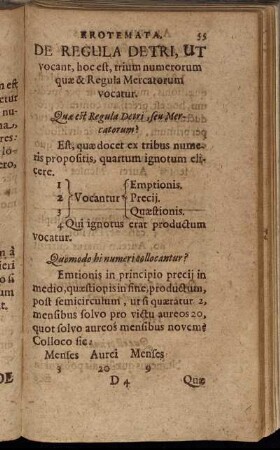 EROTEMATA. 55
DE REGULA DETRI, UT
vocant, hoc est, trium numerorum
quæ & Regula Mercatorum
vocatur.
Quæ est Regula Detri, seu Mer-
catorum?
Est, quæ docet ex tribus nume-
ris propositis, quartum ignotum eli-
cere.
1 Emptionis.
2 Vocantur Precij.
3 Quæstionis.
4 Qui ignotus erat productum
vocatur.
Quomodo hi numeri collocantur?
Emtionis in principio precij in
medio, quæstiopis in fine, productum,
post semicirculum, ut si quæratur 2,
mensibus solvo pro victu aureos 20,
quot solvo aureos mensibus novem?
Colloco sic:
Menses Aurei Menses
3 20 9
D 4 Quæ